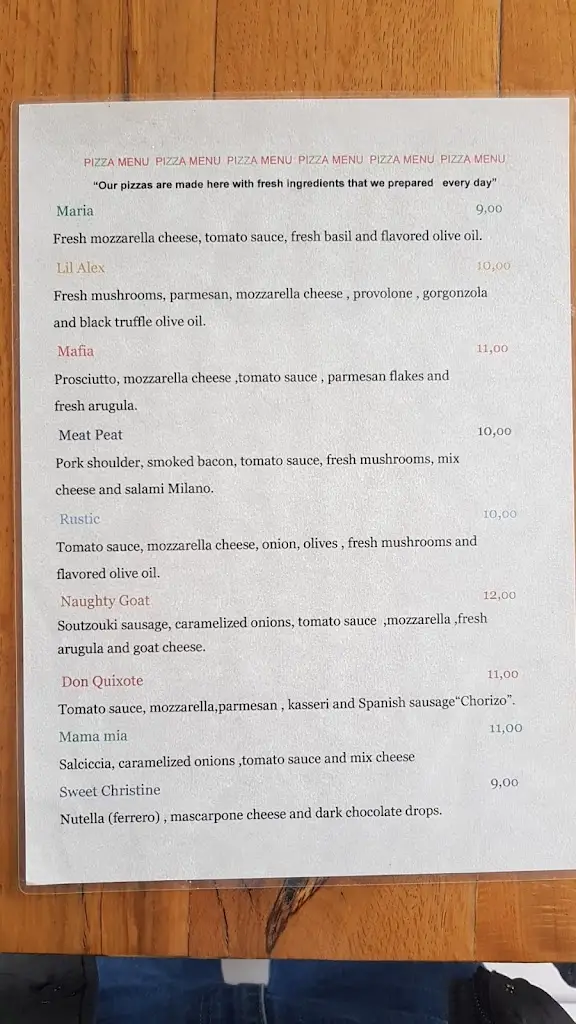 PIZZA MENU PIZZA MENU PIZZA MENU PIZZA MENU PIZZA MENU PIZZA MENU
"Our pizzas are made here with fresh ingredients that we prepared every day"
Maria 9,00
Fresh mozzarella cheese, tomato sauce, fresh basil and flavored olive oil.
Lil Alex 10,00
Fresh mushrooms, parmesan, mozzarella cheese , provolone , gorgonzola
and black truffle olive oil.
Mafia 11,00
Prosciutto, mozzarella cheese ,tomato sauce , parmesan flakes and
fresh arugula.
Meat Peat 10,00
Pork shoulder, smoked bacon, tomato sauce, fresh mushrooms, mix
cheese and salami Milano.
Rustic 10,00
Tomato sauce, mozzarella cheese, onion, olives , fresh mushrooms and
flavored olive oil.
Naughty Goat 12,00
Soutzouki sausage, caramelized onions, tomato sauce ,mozzarella ,fresh
arugula and goat cheese.
Don Quixote 11,00
Tomato sauce, mozzarella,parmesan , kasseri and Spanish sausage"Chorizo".
Mama mia 11,00
Salciccia, caramelized onions ,tomato sauce and mix cheese
Sweet Christine 9,00
Nutella (ferrero) , mascarpone cheese and dark chocolate drops.